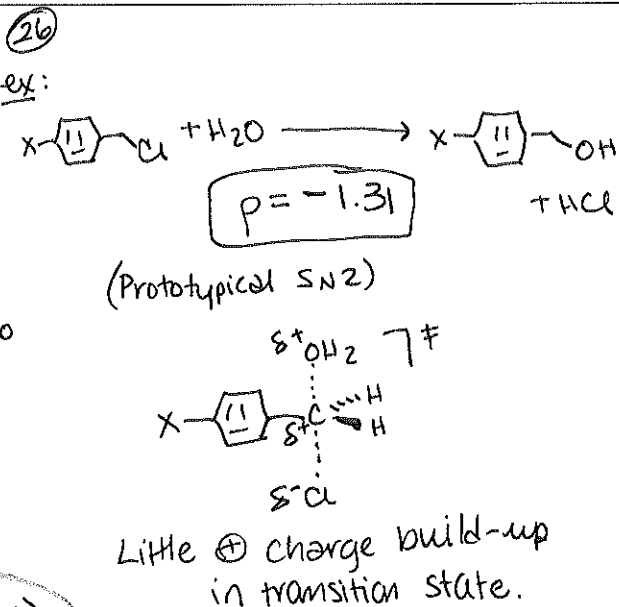 26
ex:
X Cl + H2O → X OH
+ HCl
ρ = -1.31
(Prototypical SN2)
δ+ OH2 ‡
X δ+ C H
H
δ- Cl
Little ⊕ charge build-up
in transition state.